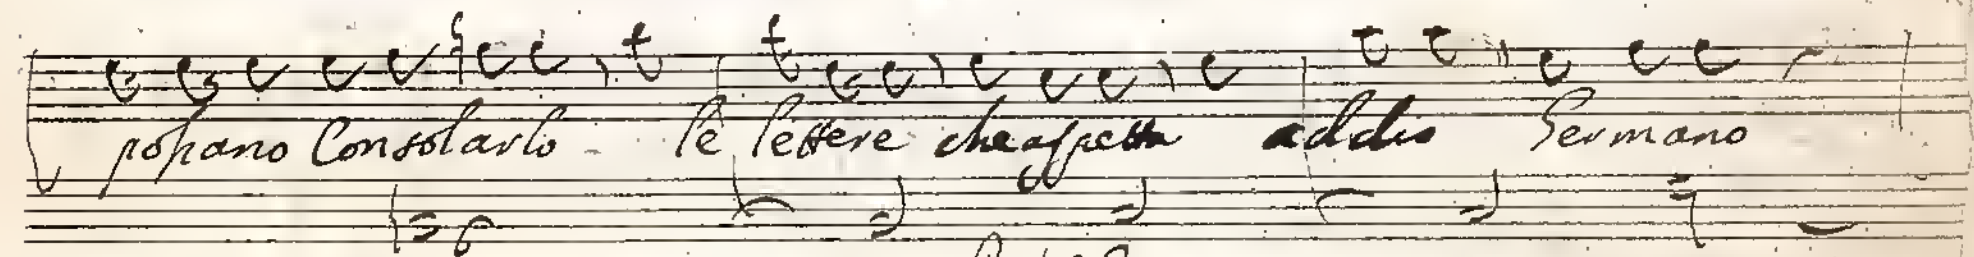 possano Consolarlo - le lettere che aspetta addio Germano